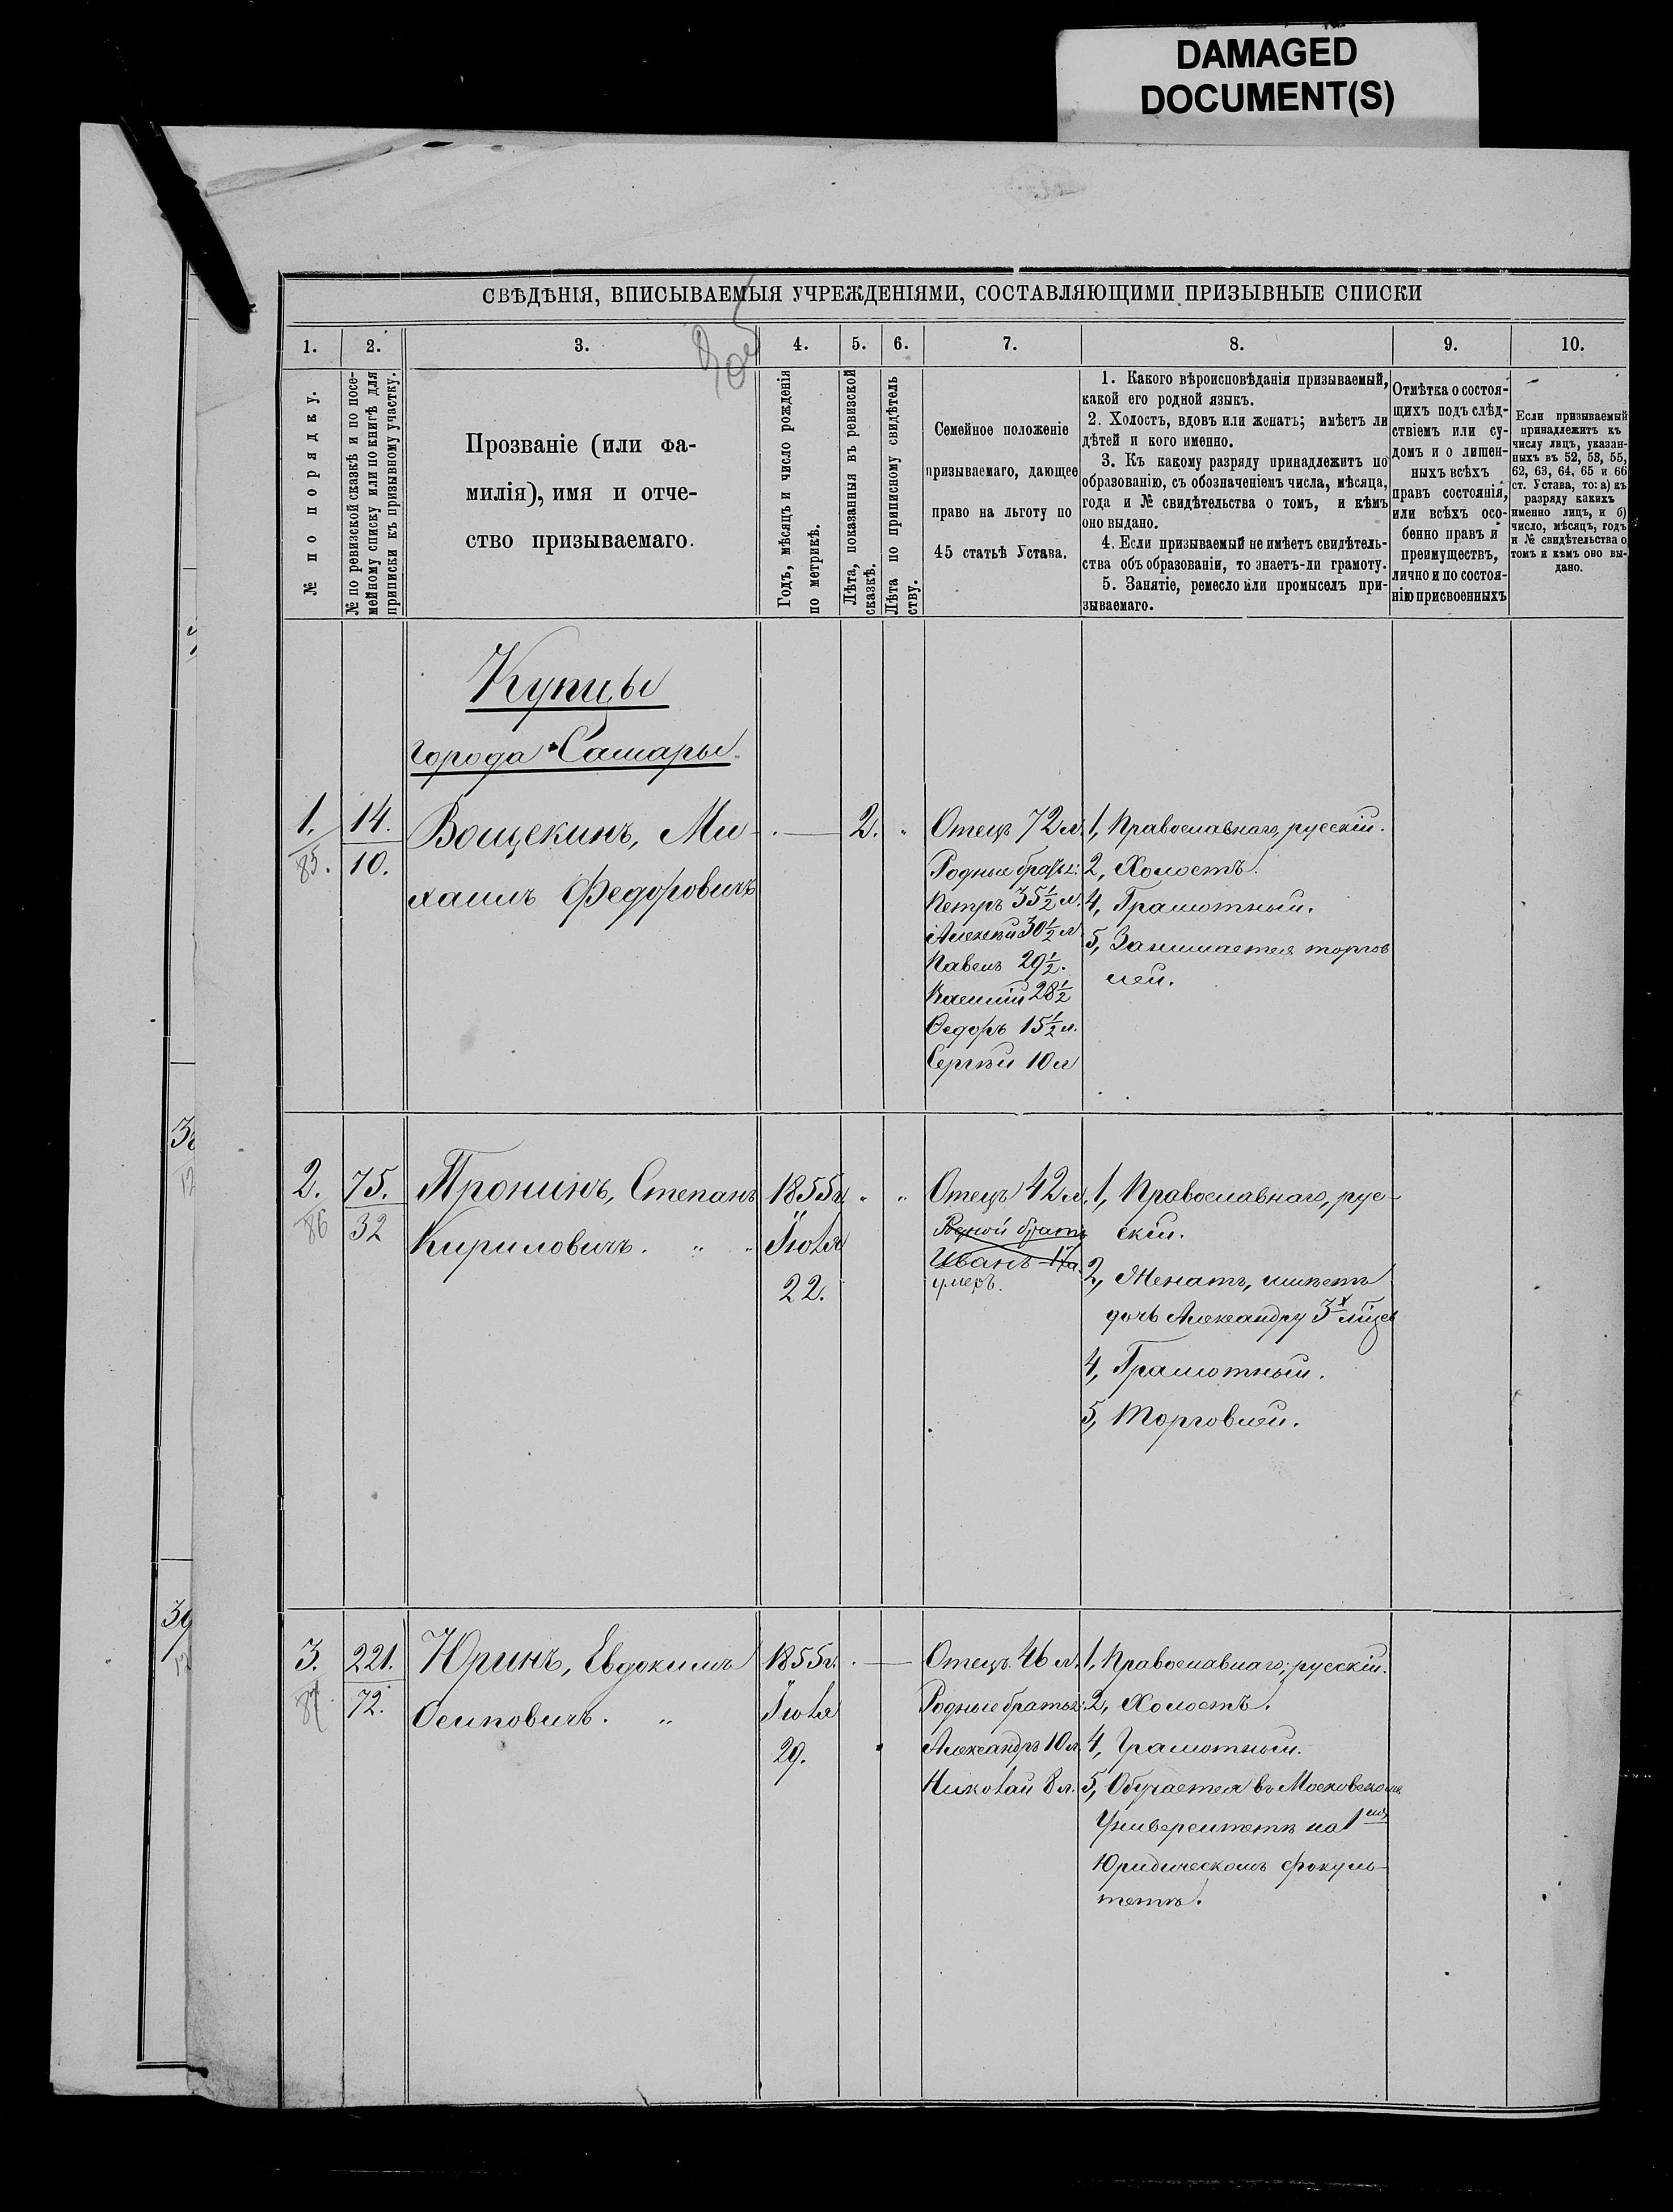 DAMAGED
DOCUMENT(S)
СВѢДѢНІЯ, ВПИСЫВАЕМЫЯ УЧРЕЖДЕНІЯМИ, СОСТАВЛЯЮЩИМИ ПРИЗЫВНЫЕ СПИСКИ
1. 2. 3. 4. 5. 6. 7. 8. 9. 10.
№ по порядку.
№ по ревизской сказкѣ и по посе-
мейному списку или по книгѣ для
приписки къ призывному участку.
Прозваніе (или фа-
милія), имя и отче-
ство призываемаго.
Годъ, мѣсяцъ и число рожденія
по метрикѣ.
Лѣта, показанныя въ ревизской
сказкѣ.
Лѣта по приписному свидѣтель
ству.
Семейное положеніе
призываемаго, дающее
право на льготу по
45 статьѣ Устава.
1. Какого вѣроисповѣданія призываемый,
какой его родной языкъ.
2. Холостъ, вдовъ или женатъ; имѣетъ ли
дѣтей и кого именно.
3. Къ какому разряду принадлежитъ по
образованію, съ обозначеніемъ числа, мѣсяца,
года и № свидѣтельства о томъ, и кѣмъ
оно выдано.
4. Если призываемый не имѣетъ свидѣтель-
ства объ образованіи, то знаетъ-ли грамоту.
5. Занятіе, ремесло или промыселъ при-
зываемаго.
Отмѣтка о состоя-
щихъ подъ слѣд-
ствіемъ или су-
домъ и о лишен-
ныхъ всѣхъ
правъ состоянія,
или всѣхъ осо-
бенно правъ и
преимуществъ,
лично и по состоя-
нію присвоенныхъ
Если призываемый
принадлежитъ къ
числу лицъ, указан-
ныхъ въ 52, 53, 55,
62, 63, 64, 65 и 66
ст. Устава, то: а) къ
разряду какихъ
именно лицъ, и б)
число, мѣсяцъ, годъ
и № свидѣтельства о
томъ и кѣмъ оно вы-
дано.
Купцы
города Самары
1.
85.
14.
10.
Вощекинъ, Ми-
хаилъ Федоровичъ
2.
Отецъ 72 л.
Родные братья:
Петръ 35½ л.
Алексѣй 30½ л
Павелъ 29½.
Василій 28½
Ѳедоръ 15½ л.
Сергѣй 10 л
1, Православнаго, русскій.
2, Холостъ.
4, Грамотный.
5, Занимается торгов
лей.
2.
86
75.
32
Пронинъ, Степанъ
Кириловичъ. " "
1855 г.
Іюля
22.
Отецъ 42 л.
Родной братъ
Иванъ 17 л.
умеръ.
1, Православнаго, рус-
скій.
2, Женатъ, имѣетъ
дочь Александру 3х мѣсяц
4, Грамотный.
5, Торговлей.
3.
87
221.
72.
Юринъ, Евдокимъ
Осиповичъ. "
1855 г.
Іюля
29.
Отецъ 46 л.
Родные братья:
Александръ 10 л.
Николай 8 л.
1, Православнаго, русскій.
2, Холостъ.
4, Грамотный.
5, Обучается въ Московскомъ
Университетѣ на 1мъ
Юридическомъ факуль-
тетѣ.